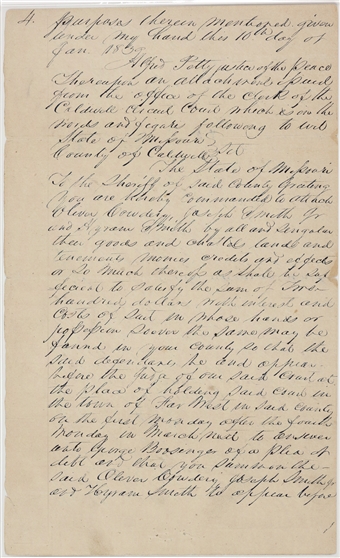 4. purposes therein mentioned given
under my hand this 10th day of
Jan. 1839
Alfred Potty justice of the peace
Thereupon an attachment issued
from the office of the clerk of the
Caldwell Circuit Court which is in the
words and figure following to wit
State of Missouri
County of Caldwell Sct
The State of Missouri
To the Sheriff of said County Greeting
You are hereby commanded to attach
Oliver Cowdery Joseph Smith Jr
and Hyram Smith by all and singular
their goods and chattels lands and
tenements monies credits and effects
or so much thereof as shall be suf
ficient to satisfy the sum of
hundred dollars with interest and
costs of suit in whose hands or
possession soever the same may be
found in your County so that the
said defendants be and appear
before the judge of our said Court at
the place of holding said Court in
the town of Far West in said County
on the first monday after the fourth
monday in March next to answer
unto George Boosinger of a plea of
debt and that you summon the
said Oliver Cowdery Joseph Smith Jr
and Hyram Smith to appear before